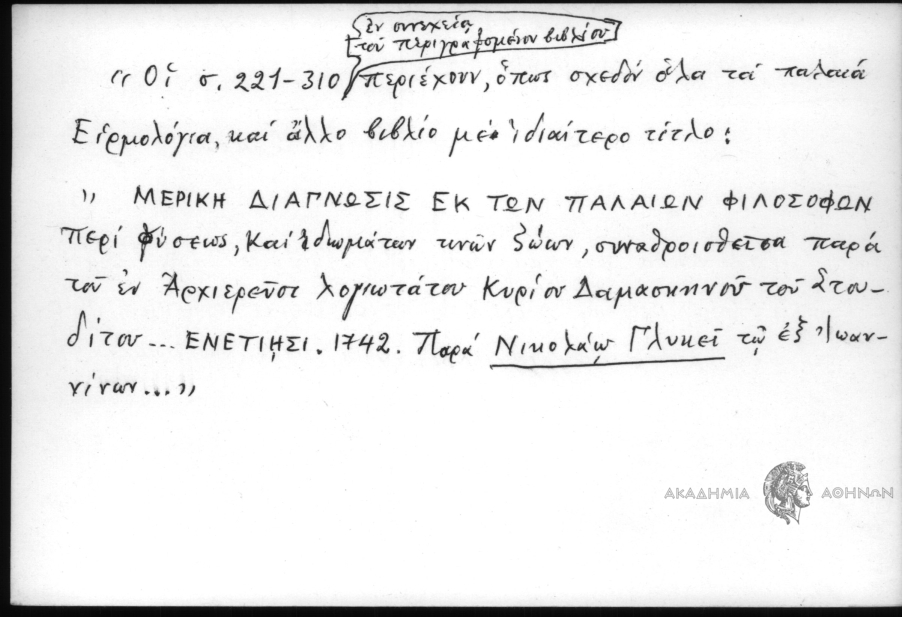 ἐν συνεχείᾳ
τοῦ περιγραφομένου βιβλίου
"Οἱ σ. 221-310 περιέχουν, ὅπως σχεδόν ὅλα τά παλαιά
Εἱρμολόγια, καί ἄλλο βιβλίο μέ ἰδιαίτερο τίτλο:
" ΜΕΡΙΚΗ ΔΙΑΓΝΩΣΙΣ ΕΚ ΤΩΝ ΠΑΛΑΙΩΝ ΦΙΛΟΣΟΦΩΝ
περί φύσεως, καί ἰδιωμάτων τινῶν ζώων, συναθροισθεῖσα παρά
τοῦ ἐν Ἀρχιερεῦσι λογιωτάτου Κυρίου Δαμασκηνοῦ τοῦ Στου-
δίτου... ΕΝΕΤΙῌΣΙ. 1742. Παρά Νικολάῳ Γλυκεῖ τῷ ἐξ Ἰωαν-
νίνων..."
ΑΚΑΔΗΜΙΑ ΑΘΗΝΩΝ